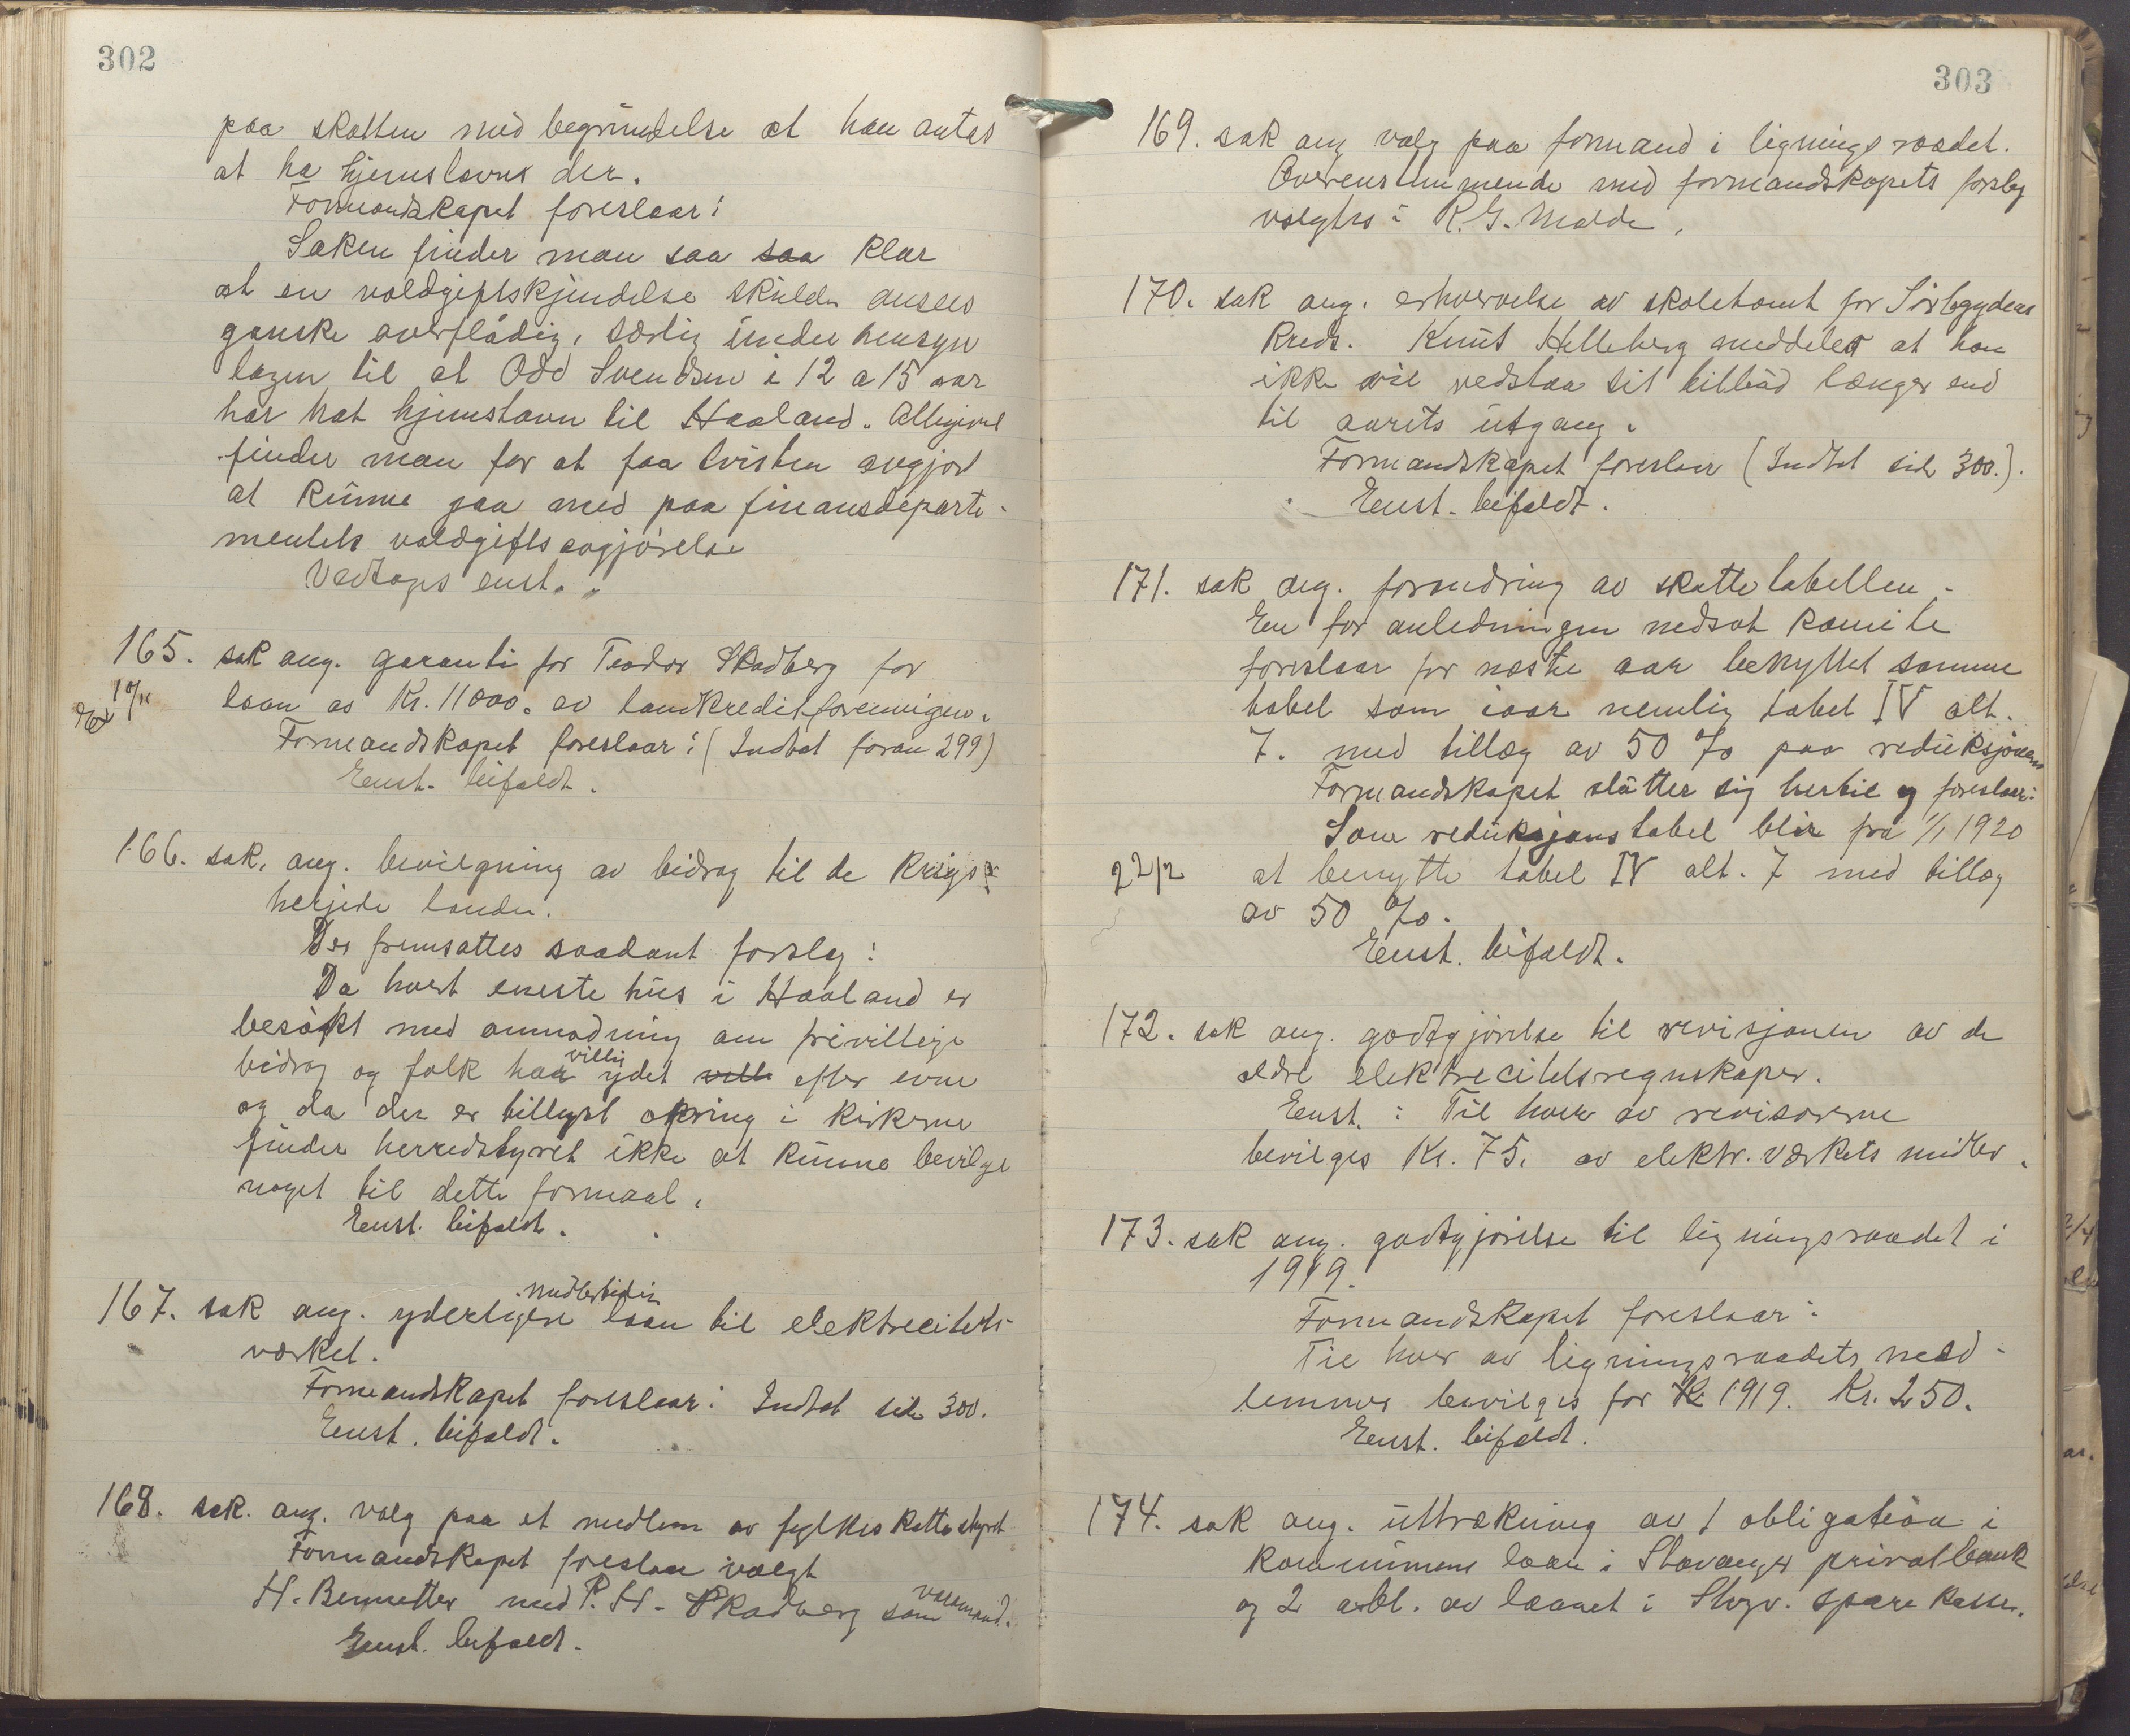 302
paa skatten med begrundelse at han antas
at ha hjemstavns der.
Formandskapet foreslaar:
Saken finder man saa saa klar
at en voldgiftskjendelse skulde ansees
ganske overflødig, særlig under hensyn
tagen til at Odd Svendsen i 12 a 15 aar
har hat hjemstavn til Haaland. Allegivel
finder man for at faa tvisten avgjort
at kunne gaa med paa finansdeparte-
mentets voldgifts avgjørelse
Vedtages enst.
165. sak ang. garanti for Teodor Skadberg for
10/11
laan as Kr. 11000. av landkreditforeningen.
Formandskapet foreslaar: (Indtat foran 299)
Enst. bifaldt.
166. sak. ang. bevilgning av bidrag til de krigs-
herjede lande.
Der fremsattes saadant forslag:
Da hvert eneste hus i Haaland er
besøkt med anmodning om frivillige
bidrag og folk har villig ydet efter evne
og da der er tillyst ofring i kirkerne
finder herredstyret ikke at kunne bevilge
noget til dette formaal.
Enst. bifaldt.
167. sak ang. yderligere midlertidig laan til elektrecitets-
værket.
Formandskapet foreslaar: Indtat side 300.
Enst. bifaldt.
168. sak. ang. valg paa et medlem av fylkesskattestyret
Formandskapet foreslaar valgt
H. Bennetter med P. H. Skadberg som varamand.
Enst. bifaldt.
303
169. sak ang valg paa formand i ligningsraadet.
Overenstemmende med formandskapets forslag
valgtes: R. G. Molde.
170. sak ang. erhvervelse av skoletomt for Sørbygdens
kreds. Knut Helleberg meddeler at han
ikke vil vedstaa sit tilbud længer end
til aarets utgang.
Formandskapet foreslaar (Indtat side 300.).
Enst. bifaldt.
171. sak ang. forandring av skattetabellen.
En for anledningen nedsat komite
foreslaar for næste aar benyttet samme
tabel som iaar nemlig tabel IV alt.
7. med tillæg av 50 % paa reduksjonen
Formandskapet slutter sig hertil og foreslaar:
Som reduksjonstabel blir fra 1/1 1920
22/12
at benytte tabel IV alt. 7 med tillæg
av 50 %.
Enst. bifaldt.
172. sak ang. godtgjørelse til revisjonen av de
ældre elektrecitetsregnskaper.
Enst.: Til hver av revisorerne
bevilges Kr. 75. av elektr. værkets midler.
173. sak ang. godtgjørelse til ligningsraadet i
1919.
Formandskapet foreslaar:
Til hver av ligningsraadets med-
lemmer bevilges for 1919. Kr. 250.
Enst. bifaldt.
174. sak ang. uttrækning av 1 obligation i
kommunens laan i Stavanger privatbank
og 2 obl. av laanet i Stvgr. sparekasse.